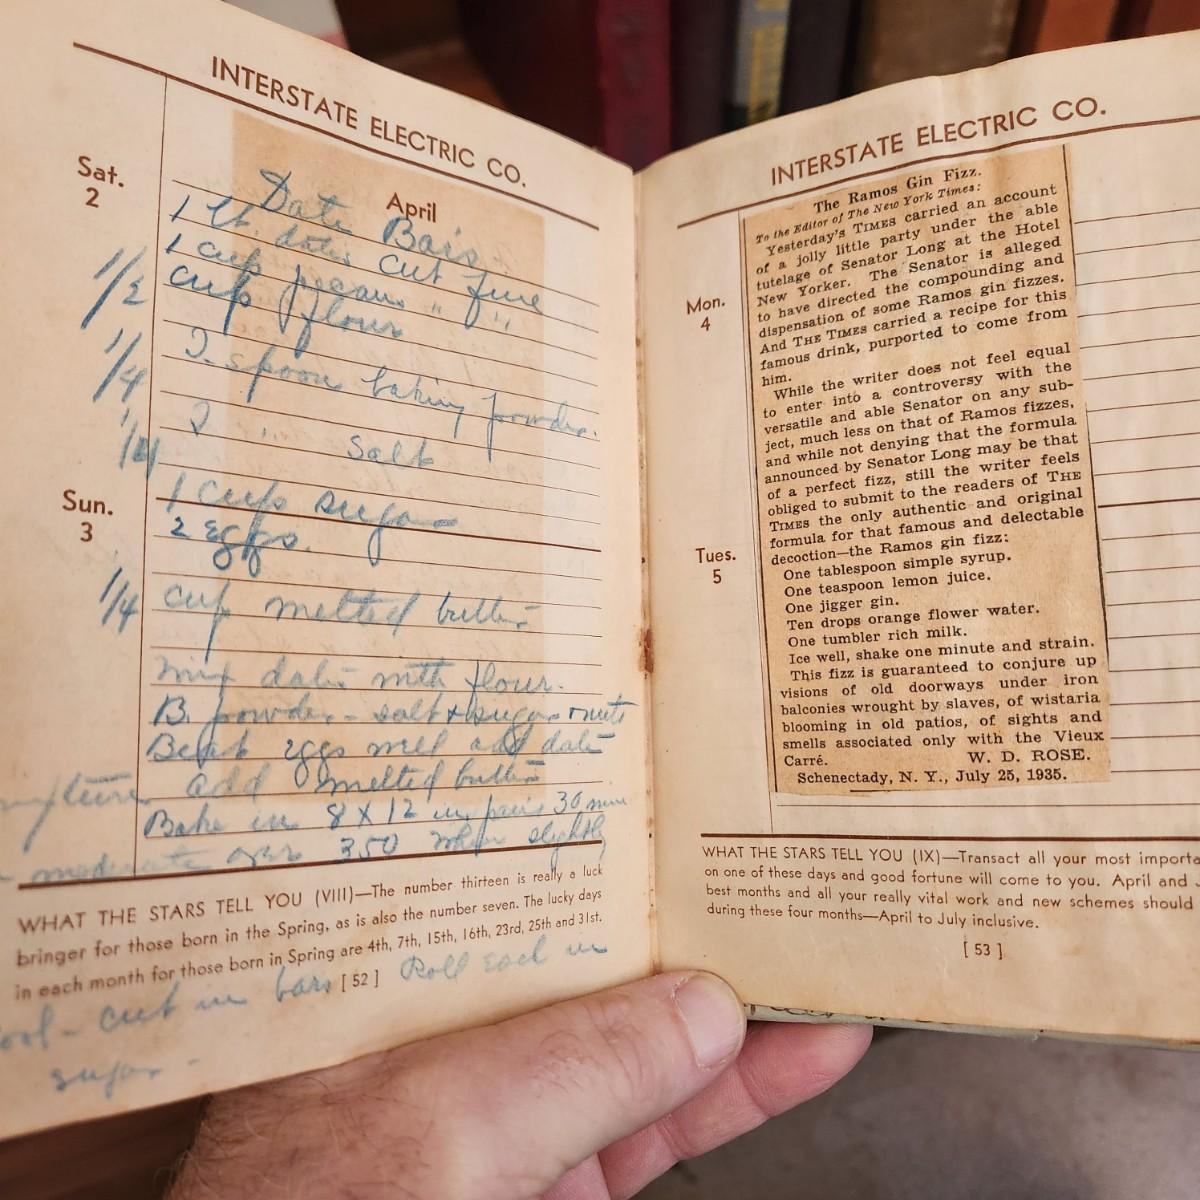 INTERSTATE ELECTRIC CO.
Sat.
2
April
Date Bars
1 lb. dates cut fine
1 cup pecans " "
1/2 cup flour
1/4 T spoon baking powder.
1/4 T " Salt
Sun.
3
1 cup sugar
2 eggs.
1/4 cup melted butter
mix dates with flour.
B. powder - salt & sugar & nuts
Beat eggs well add date
mixture add melted butter
Bake in 8 X 12 in. pan 30 min
in moderate oven 350 when slightly
WHAT THE STARS TELL YOU (VIII)—The number thirteen is really a luck
bringer for those born in the Spring, as is also the number seven. The lucky days
in each month for those born in Spring are 4th, 7th, 15th, 16th, 23rd, 25th and 31st.
[ 52 ]
cool - cut in bars Roll each in
sugar -
INTERSTATE ELECTRIC CO.
Mon.
4
Tues.
5
The Ramos Gin Fizz.
To the Editor of The New York Times:
Yesterday's TIMES carried an account
of a jolly little party under the able
tutelage of Senator Long at the Hotel
New Yorker. The Senator is alleged
to have directed the compounding and
dispensation of some Ramos gin fizzes.
And THE TIMES carried a recipe for this
famous drink, purported to come from
him.
While the writer does not feel equal
to enter into a controversy with the
versatile and able Senator on any sub-
ject, much less on that of Ramos fizzes,
and while not denying that the formula
announced by Senator Long may be that
of a perfect fizz, still the writer feels
obliged to submit to the readers of THE
TIMES the only authentic and original
formula for that famous and delectable
decoction—the Ramos gin fizz:
One tablespoon simple syrup.
One teaspoon lemon juice.
One jigger gin.
Ten drops orange flower water.
One tumbler rich milk.
Ice well, shake one minute and strain.
This fizz is guaranteed to conjure up
visions of old doorways under iron
balconies wrought by slaves, of wistaria
blooming in old patios, of sights and
smells associated only with the Vieux
Carré. W. D. ROSE.
Schenectady, N. Y., July 25, 1935.
WHAT THE STARS TELL YOU (IX)—Transact all your most importa
on one of these days and good fortune will come to you. April and J
best months and all your really vital work and new schemes should
during these four months—April to July inclusive.
[ 53 ]